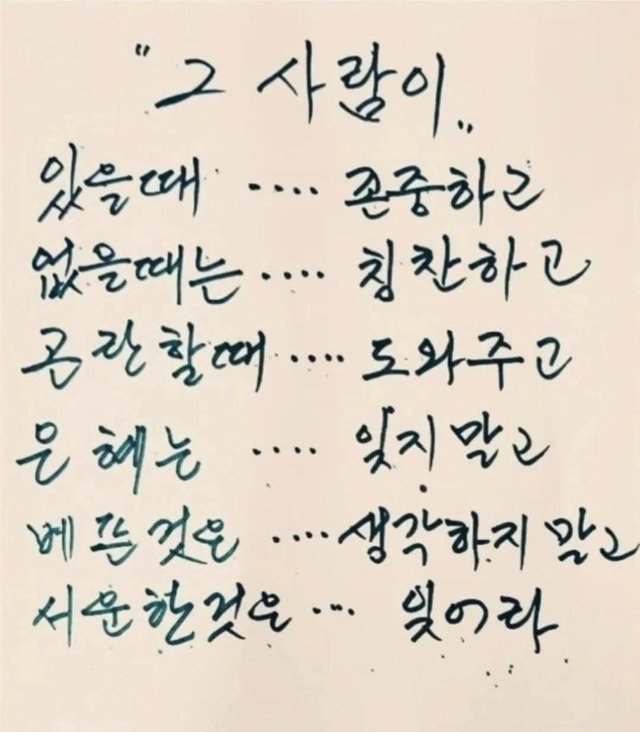 "그 사람이„
있을때 .... 존중하고
없을때는 .... 칭찬하고
곤란할때 .... 도와주고
은혜는 .... 잊지말고
베푼것은 .... 생각하지 말고
서운한것은 ... 잊어라